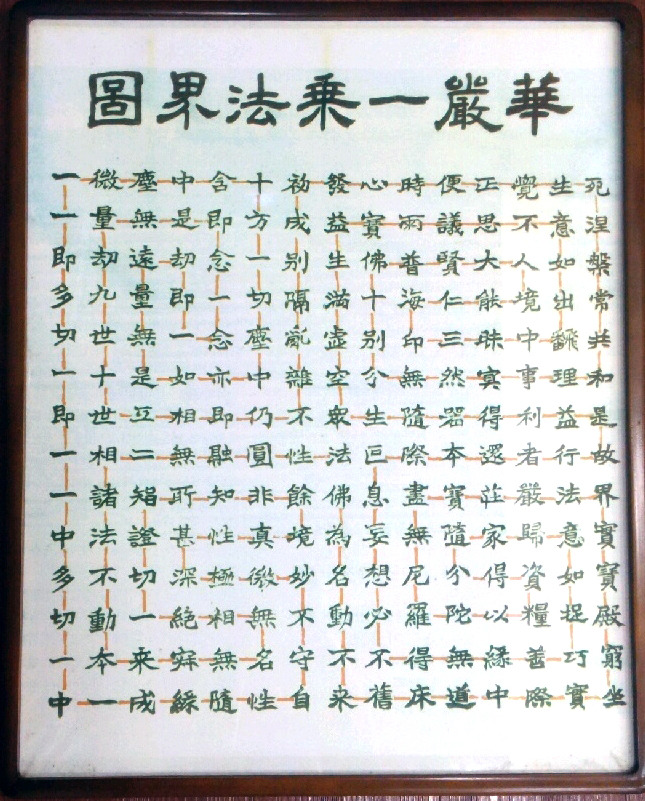 華嚴一乗法界圖
一微塵中含十初發心時便正覺生死
一量無是即方成益寶雨議思不意涅
即劫遠劫念一别生佛普賢大人如槃
多九量即一切隔滿十海仁能境出常
切世無一念塵亂虛别印三昧中飜共
一十是如亦中雜空分無然冥事理和
即世互相即仍不眾生隨器得利益是
一相二無融圓性法叵際本還者行故
一諸智所知非餘佛息盡寶莊嚴法界
中法證甚性真境為妄無隨家歸意實
多不切深極微妙名想尼分得資如寶
切動一絶相無不動必羅陀以糧捉殿
一本来寂無名守不不得無緣善巧窮
中一成緣隨性自来舊床道中際實坐